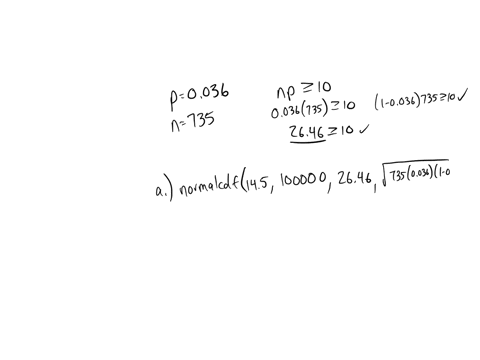 p=0.036 np ≥ 10
n=735 0.036(735) ≥ 10 (1-0.036)735 ≥ 10 ✓
26.46 ≥ 10 ✓
a.) normalcdf(14.5, 100000, 26.46, √735(0.036)(1-0